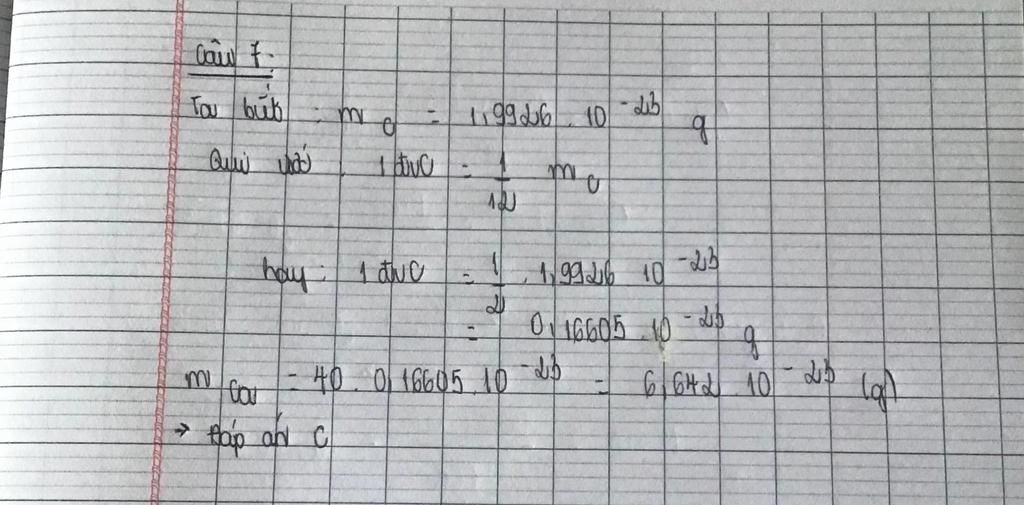 Câu 7:
Ta biết : m C = 1,9926 . 10⁻²³ g
Qui ước : 1 đvC = 1/12 m C
hay : 1 đvC = 1/2 . 1,9926 10⁻²³
= 0,16605 . 10⁻²³ g
m Ca = 40 . 0,16605 . 10⁻²³ = 6,642 . 10⁻²³ (g)
→ Đáp án C